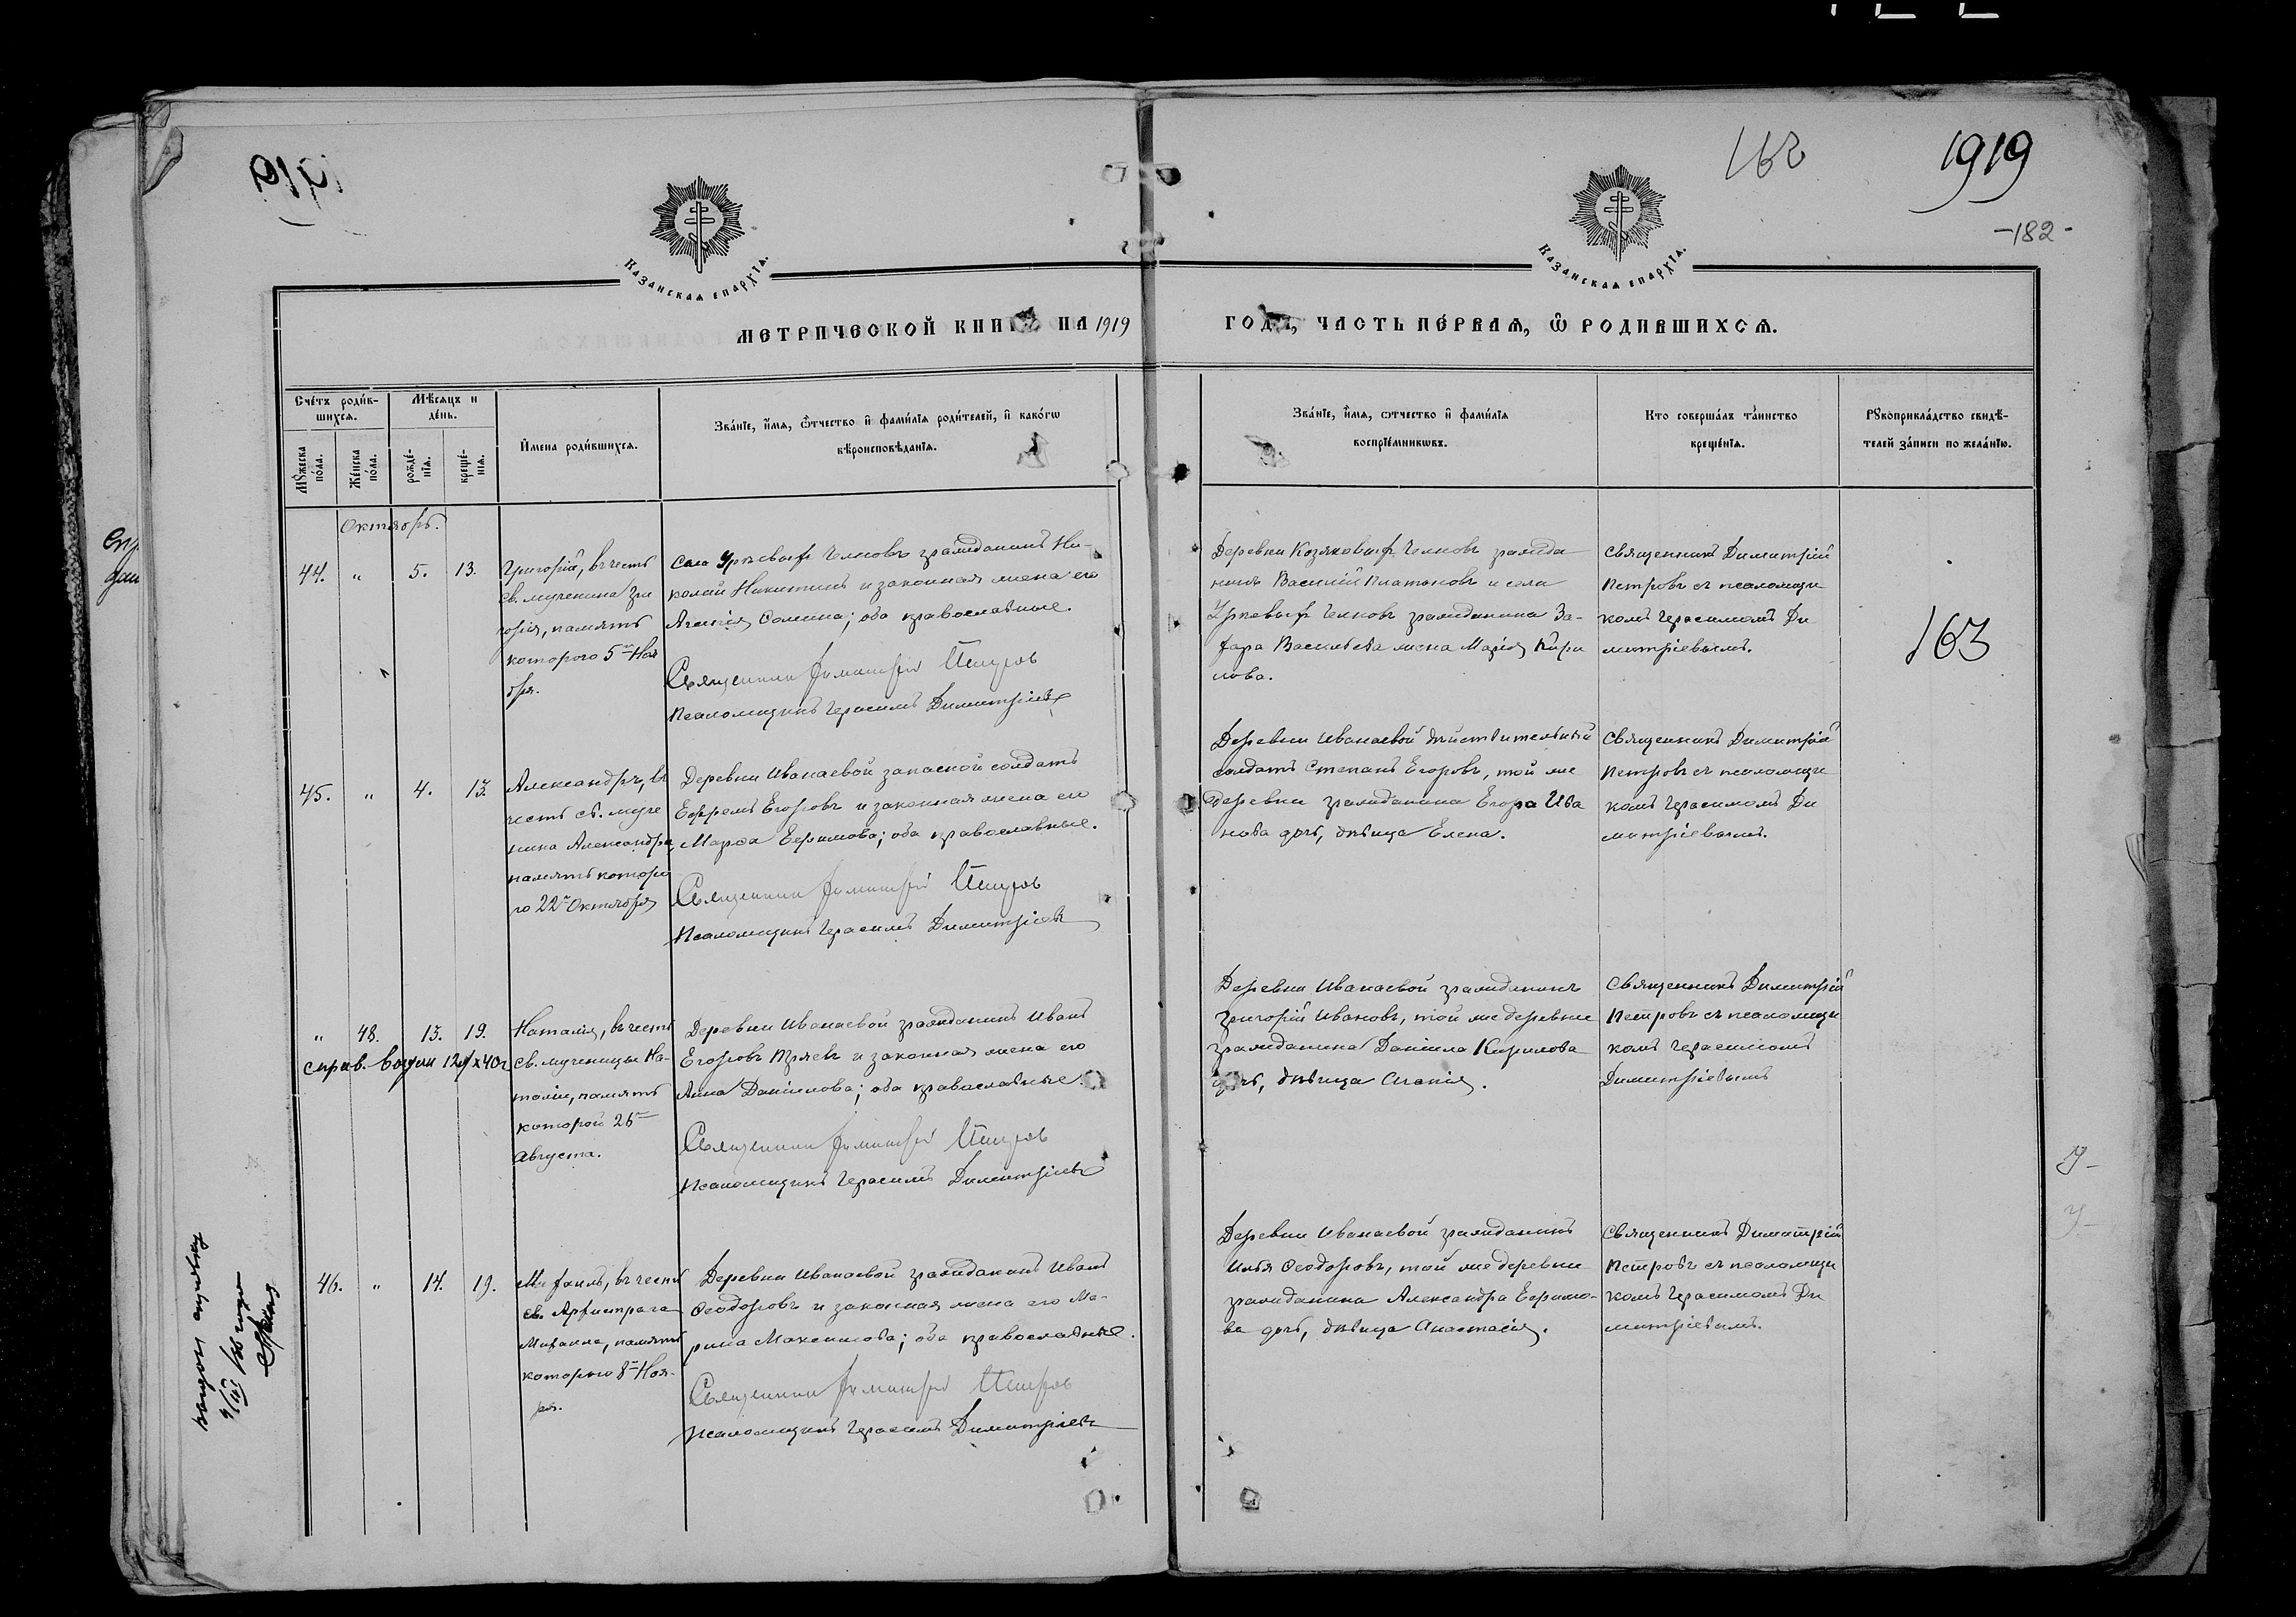 1919
162
1919
-182-
Казанская епархіѧ.
Казанская епархіѧ.
МЕТРИЧЕСКОЙ КНИГИ НА 1919
ГОДЪ, ЧАСТЬ ПЕ́РВАѦ, Ѡ҆ РОДИВШИХСѦ.
Сче́тъ роди́в-
шихсѧ.
Мѣ́сѧцъ и
де́нь.
Мꙋ́жеска
по́ла.
Же́нска
по́ла.
рожде́-
нїѧ.
креще́-
нїѧ.
И҆мена роди́вшихсѧ.
Зва́нїе, и҆́мѧ, ѻ҆́тчество и҆ фами́лїѧ роди́телей, и҆ како́гѡ
вѣроисповѣ́данїѧ.
Зва́нїе, и҆́мѧ, ѻтчество и҆ фами́лїѧ
воспрїе́мникѡвъ.
Кто соверша́лъ та́инство
креще́нїѧ.
Рꙋкоприкла́дство свидѣ́-
телей за́писи по жела́нїю.
Октябрь.
44. " 5. 13.
Григорій, въ честь
св. мученика Гри
горія, память
котораго 5го Ноя
бря.
Села
гражданинъ Ни-
колай Никитинъ и законная жена его
Сомина; оба православные.
Священникъ Димитрій Петровъ
Псаломщикъ Герасимъ Димитріевъ
Деревни Козяковыхъ Челновъ гражда
нинъ Василій Платоновъ и села
Челновъ гражданина За-
хара Васильева жена Марія Кири
лова.
Священникъ Димитрій
Петровъ съ псаломщи
комъ Герасимомъ Ди
митріевымъ.
163
45. " 4. 13.
Александръ, въ
честь св. муче
ника Александра,
память которо
го 22го Октября
Деревни Иванаевой запасной солдатъ
Ефремъ Егоровъ и законная жена его
Марѳа Ефимова; оба православные.
Священникъ Димитрій Петровъ
Псаломщикъ Герасимъ Димитріевъ
Деревни Иванаевой дѣйствительный
солдатъ Степанъ Егоровъ, той же
деревни гражданина Егора Ива
нова дочь, дѣвица Елена.
Священникъ Димитрій
Петровъ съ псаломщи
комъ Герасимомъ Ди
митріевымъ.
" 48. 13. 19.
справ. выдан
Наталія, въ честь
св. мученицы На-
таліи, память
которой 26го
Августа.
Деревни Иванаевой гражданинъ Иванъ
Егоровъ и законная жена его
Анна Даніилова; оба православные.
Священникъ Димитрій Петровъ
Псаломщикъ Герасимъ Димитріевъ
Деревни Иванаевой гражданинъ
Григорій Ивановъ, той же деревни
гражданина Даніила Кирилова
дочь, дѣвица
Священникъ Димитрій
Петровъ съ псаломщи
комъ Герасимомъ
Димитріевымъ
46. " 14. 19.
Михаилъ, въ честь
св. Архистратига
Михаила, память
котораго 8го Ноя-
бря.
Деревни Иванаевой гражданинъ Иванъ
Ѳеодоровъ и законная жена его Ма-
рина Максимова; оба православные.
Священникъ Димитрій Петровъ
Псаломщикъ Герасимъ Димитріевъ
Деревни Иванаевой гражданинъ
Илья Ѳеодоровъ, той же деревни
гражданина Александра Ефимо-
ва дочь, дѣвица Анастасія.
Священникъ Димитрій
Петровъ съ псаломщи
комъ Герасимомъ Ди
митріевымъ.